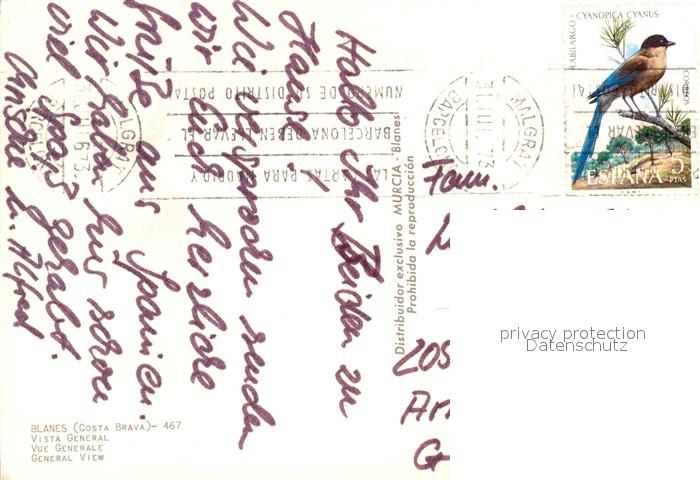 Hallo Ihr Beiden zu
Haus!
Wie versprochen senden
wir Euch herzliche
Grüße aus Spanien.
Wir haben hier schon
viel Spaß gehabt.
u. Alfred
RABILARGO - CYANOPICA CYANUS
CORREOS
ESPAÑA 5 PTAS
MALGRAT
31 JUL 73
BARCELONA
LAS CARTAS PARA MADRID Y
BARCELONA DEBEN LLEVAR EL
NUMERO DE SU DISTRITO POSTAL
Distribuidor exclusivo MURCIA - Blanes
Prohibida la reproducción
Fam.
privacy protection
Datenschutz
BLANES (COSTA BRAVA) - 467
VISTA GENERAL
VUE GENERALE
GENERAL VIEW